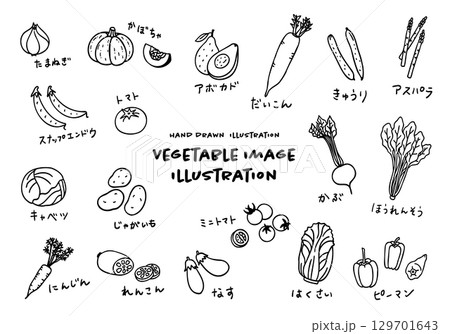 たまねぎ
かぼちゃ
アボカド
だいこん
きゅうり
アスパラ
スナップエンドウ
トマト
HAND DRAWN ILLUSTRATION
VEGETABLE IMAGE
ILLUSTRATION
キャベツ
じゃがいも
ミニトマト
かぶ
ほうれんそう
にんじん
れんこん
なす
はくさい
ピーマン
pixta.jp - 129701643